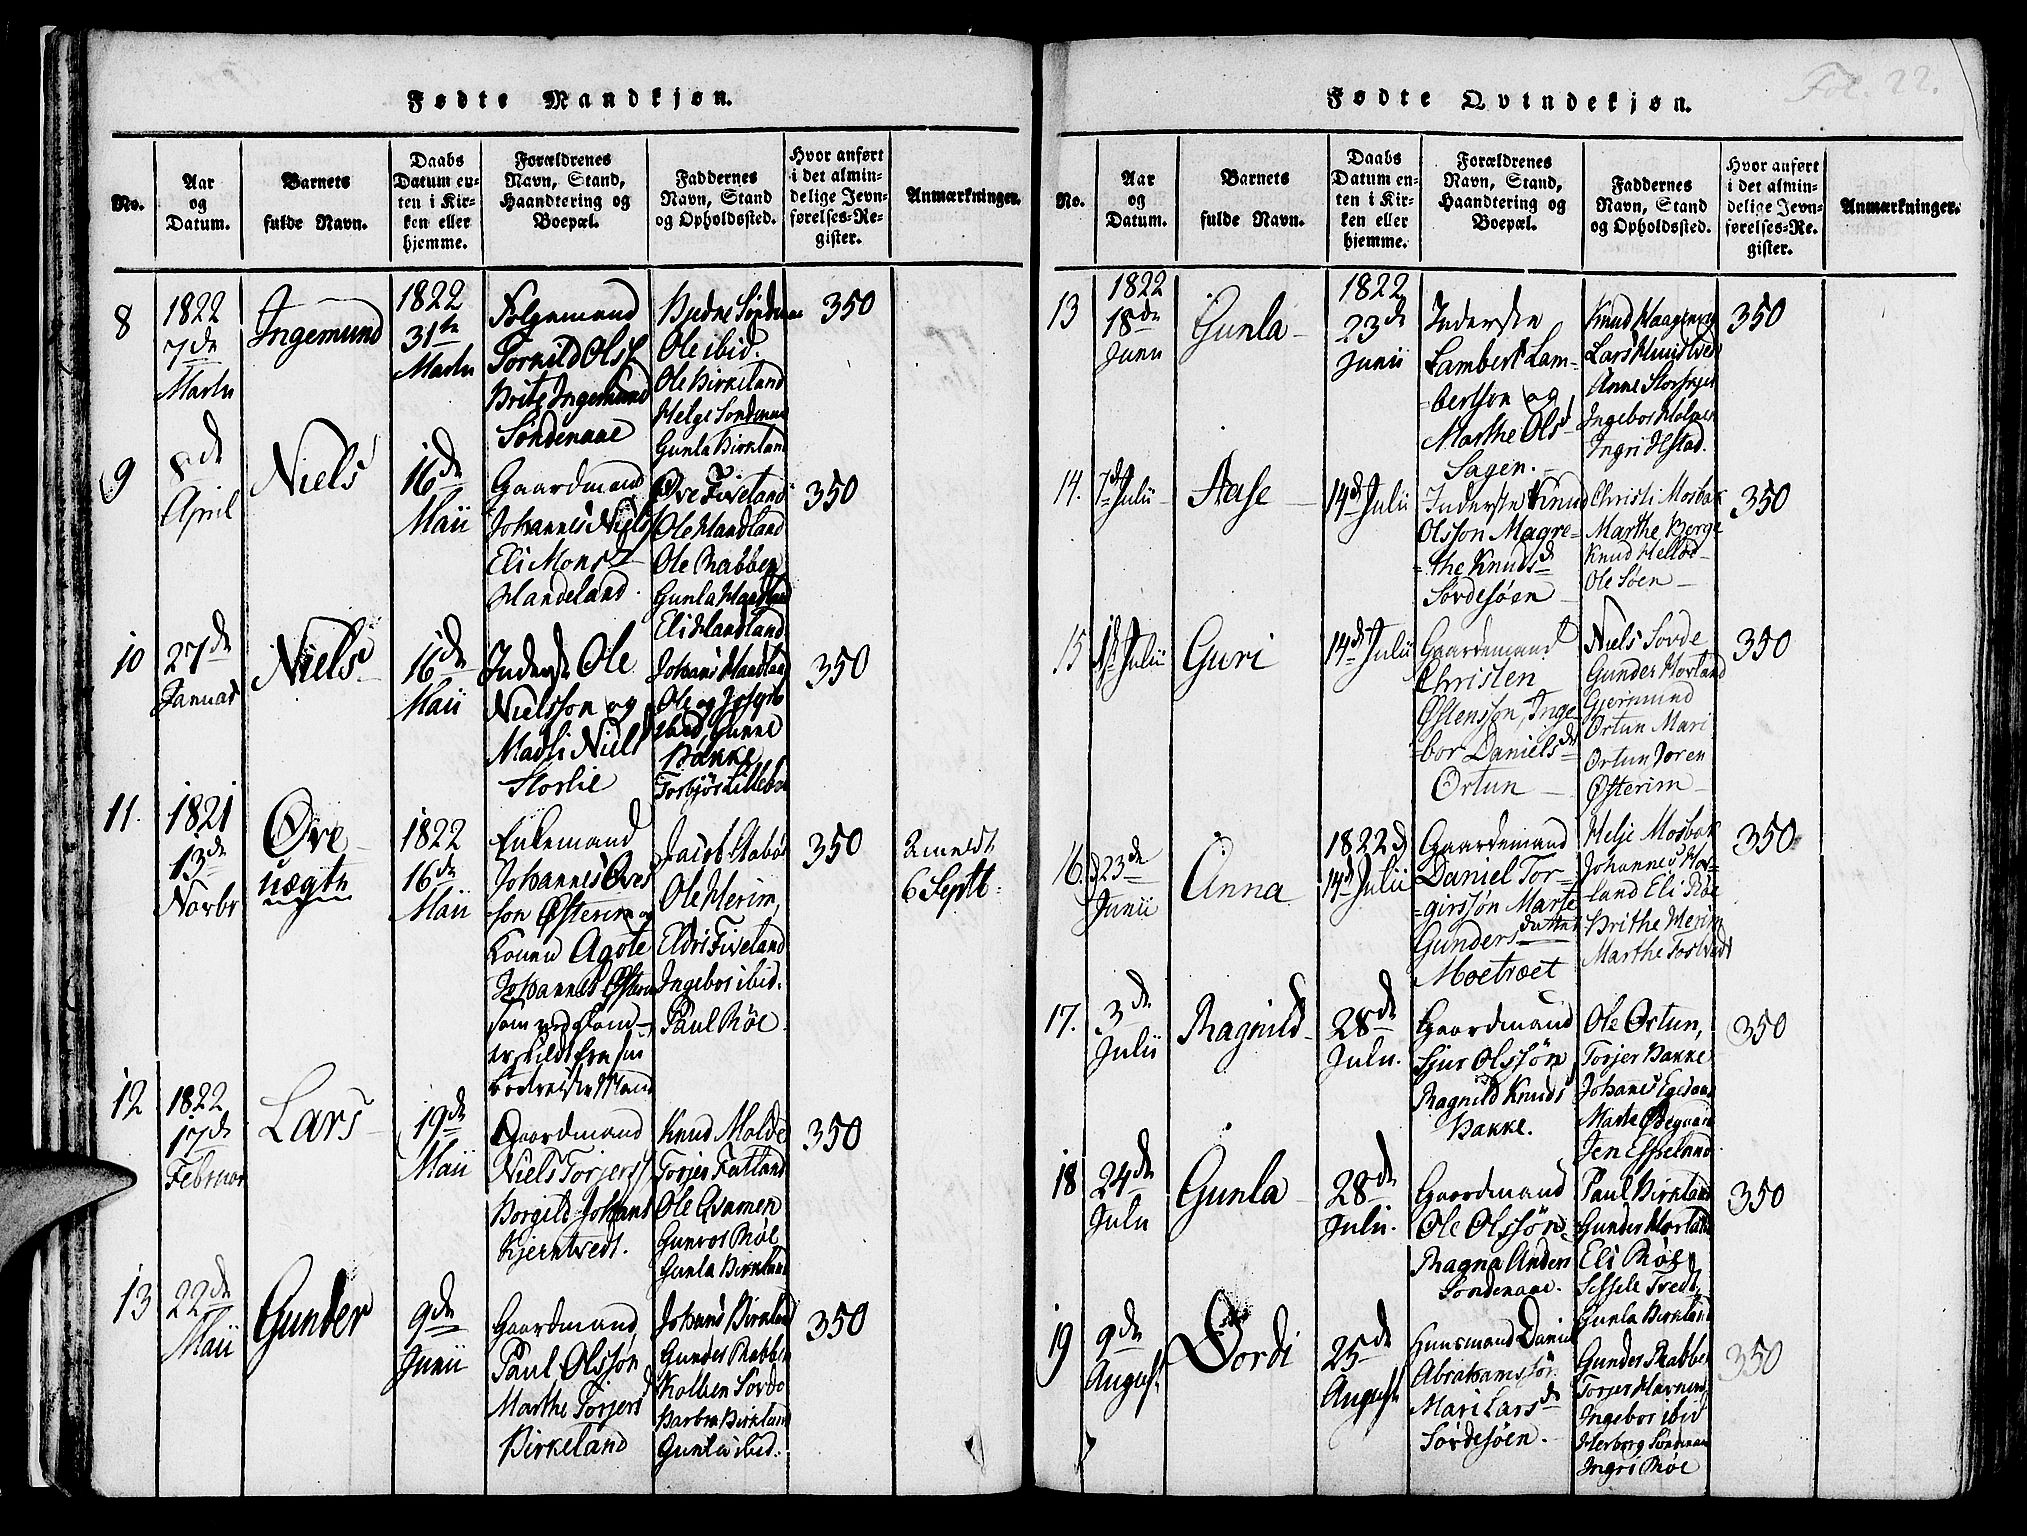 Fødte Mandkjøn.
No.
Aar
og
Datum.
Barnets
fulde Navn.
Daabs
Datum en-
ten i Kir-
ken eller
hjemme.
Forældrenes
Navn, Stand,
Haandtering og
Boepæl.
Faddernes
Navn, Stand
og Opholdssted.
Hvor anført
i det almin-
delige Jevn-
førelses-Re-
gister.
Anmærkninger.
8
1822
7de
Martii
Ingemund
1822
31te
Martii
Torkild Ols
Brite Ingemund
Søndenaae
Ole ibid.
Ole Birkeland
Helge Søndenaae
Gunla Birkland
350
9
8de
April
Niels
16de
Maii
Gaardmand
Johannes Niels
Eli Mons
Handeland
Ove Fiveland
Ole Handland
Ole Rabben
Gunla Handland
Eli Handland
350
10
27de
Januar
Niels
16de
Maii
Inderste Ole
Nielsson og
Madli Niels
Storlie
Johans Handland
Ole og Joseph
Gunne
Bakke
350
11.
1821
13de
Novbr
Ove
uægte
1822
16de
Maii
Enkemand
Johannes Oves
son Østerim og
Konen Agote
Johannes
Jacob
Ole Herim,
Eldri Fiveland
Ingebor ibid.
Paul Røe
350
Anmeldt
6 Septb:
12
1822
17de
Februar
Lars
19de
Maii
Gaardmand
Niels Torjers
Borgild Johans
Kjerntvedt.
Knud Molde
Torjer Fatland
Ole Qvamen
Gunvor Røe
Gunla Birkland
350
13
22de
Maii
Gunder
9de
Junii
Gaardmand
Paul Olsson
Marthe Torjers
Birkeland
Johans Birkland
Gunder Rabben
Kolben Sørde
Barbra Birkland
Gunla ibid.
350
Fødte Qvindekjøn.
Fol. 22.
No.
Aar
og
Datum.
Barnets
fulde Navn.
Daabs
Datum en-
ten i Kir-
ken eller
hjemme.
Forældrenes
Navn, Stand,
Haandtering og
Boepæl.
Faddernes
Navn, Stand
og Opholdssted.
Hvor anført
i det almin-
delige Jevn-
førelses-Re-
gister.
Anmærkninger.
13
1822
18de
Junii
Gunla
1822
23de
Junii
Inderste
Lambert Lam-
=bertson og
Marthe Olsd
Sagen.
Knud
Lars
Anne
Ingebor
Ingri Ilstad.
350
14.
7de Julii
Aase
14de Julii
Inderste Knud
Olsson Magre-
=the Knudsd
Sørdesøen
Christi Mosbak
Marthe Berge
Knud
Ole Søen
350
15
1ste Julii
Guri
14de Julii
Gaardemand
Christen
Østensson, Inge
=bor Danielsd
Ørtun
Niels Sørde
Gunder Hovland
Gjermund
Ørtun Mari
Ørtun Joren
Østerim
350
16.
23de
Junii
Anna
1822
14de Julii
Gaardemand
Daniel Tor-
=girsson Marte
Gunders datter
Moetræet
Helje Mosbak
Johannes Hov-
=land Eli Røe
Brithe Herim
Marthe
350
17.
3de
Julii
Ragnild
28de
Julii.
Gaardmand
Siur Olssøn
Ragnild Knuds
Bakke.
Ole Ørtun,
Torjer Bakke
Johanes Egeland
Marte Ødegaard
Jen Esseland
350
18
24de
Julii
Gunla
28de
Julii.
Gaardmand
Ole Olssøn
Ragna Anders
Søndenaae.
Paul Birkland
Gunder Hovland
Eli Røe
Sessele Tvedt
Gunla Birkland
350
19
9de
August
Gordi
25de
August
Huusmand Daniel
Abrahamssøn
Mari Larsd
Sørdesøen.
Gunder Rabbe
Torjer Havnen
Ingebor ibid
Herborg Søndenaa
Ingri Røe
350